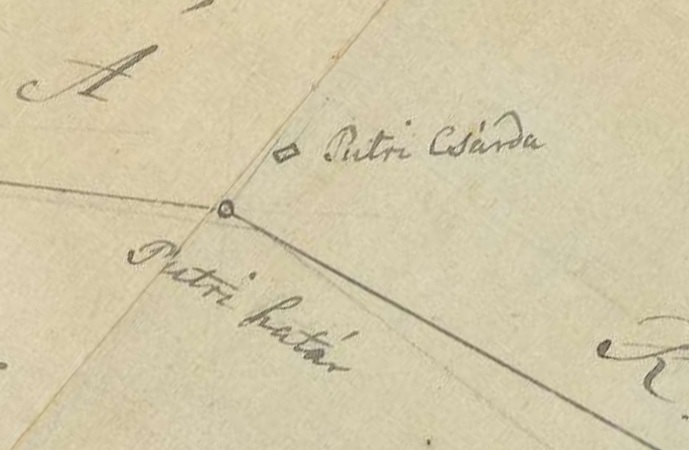 A
Putri Csárda
Putri határ
K